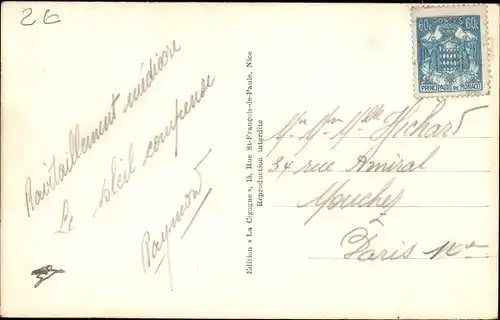 26
Ravitaillement médiocre
Le soleil compense
Raymond
Edition « La Cigogne », 15, Rue St-François-de-Paule, Nice
Reproduction interdite
60c POSTES 60c
PRINCIPAUTÉ DE MONACO
Mr Mme Mlle Michard
34 rue Amiral
Mouchez
Paris